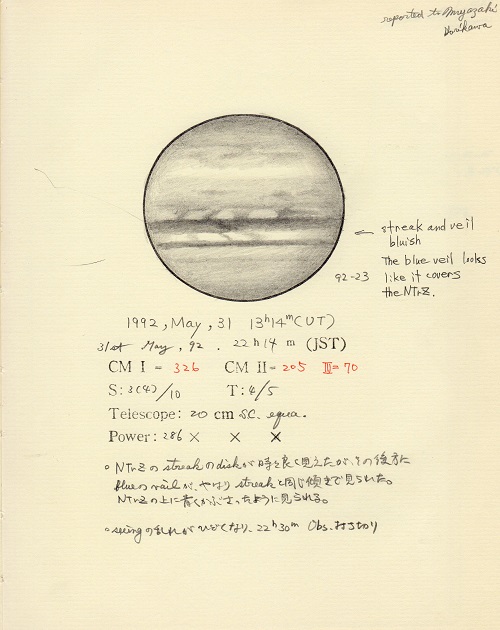 reported to Miyazaki
Horikawa
streak and veil
bluish
The blue veil looks
like it covers
the NTrZ.
92-23
1992, May, 31 13h14m(UT)
31st May, 92. 22h14m (JST)
CM I = 326 CM II = 205 III = 70
S: 3(4)/10 T: 4/5
Telescope: 20 cm SC. equa.
Power: 286 × × ×
○ NTrZの streakのdiskが時々良く見えたが、その後方に
blueのveilが、やはりstreakと同じ傾きで見られた。
NTrZの上に青くかぶさったように見られる。
○ seeingの乱れがひどくなり、22h30m Obs. おうちきり